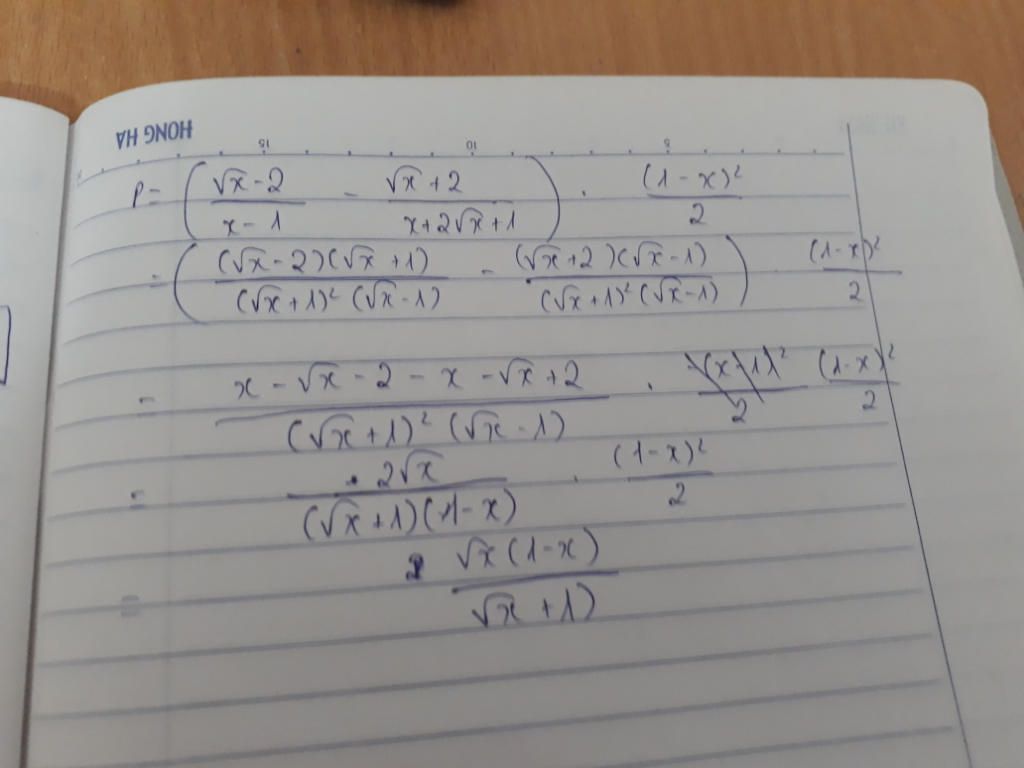 HONG HA
15 10 5
P = ( (√x - 2)/(x - 1) - (√x + 2)/(x + 2√x + 1) ) . (1 - x)²/2
= ( (√x - 2)(√x + 1)/((√x + 1)² (√x - 1)) - (√x + 2)(√x - 1)/((√x + 1)² (√x - 1)) ) . (1 - x)²/2
= (x - √x - 2 - x - √x + 2)/((√x + 1)² (√x - 1)) . (1 - x)²/2
= 2√x/((√x + 1)(1 - x)) . (1 - x)²/2
= √x (1 - x)/√x + 1)